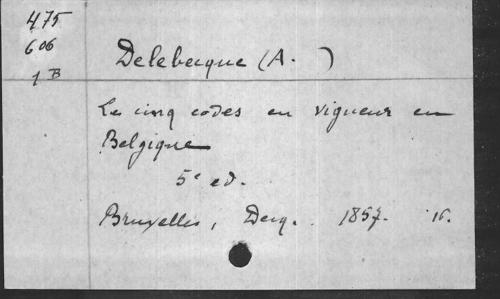 475
606
1 B
Delebecque (A. )
Les cinq codes en vigueur en
Belgique
5e ed.
Bruxelles, Decq. 1857. 16.